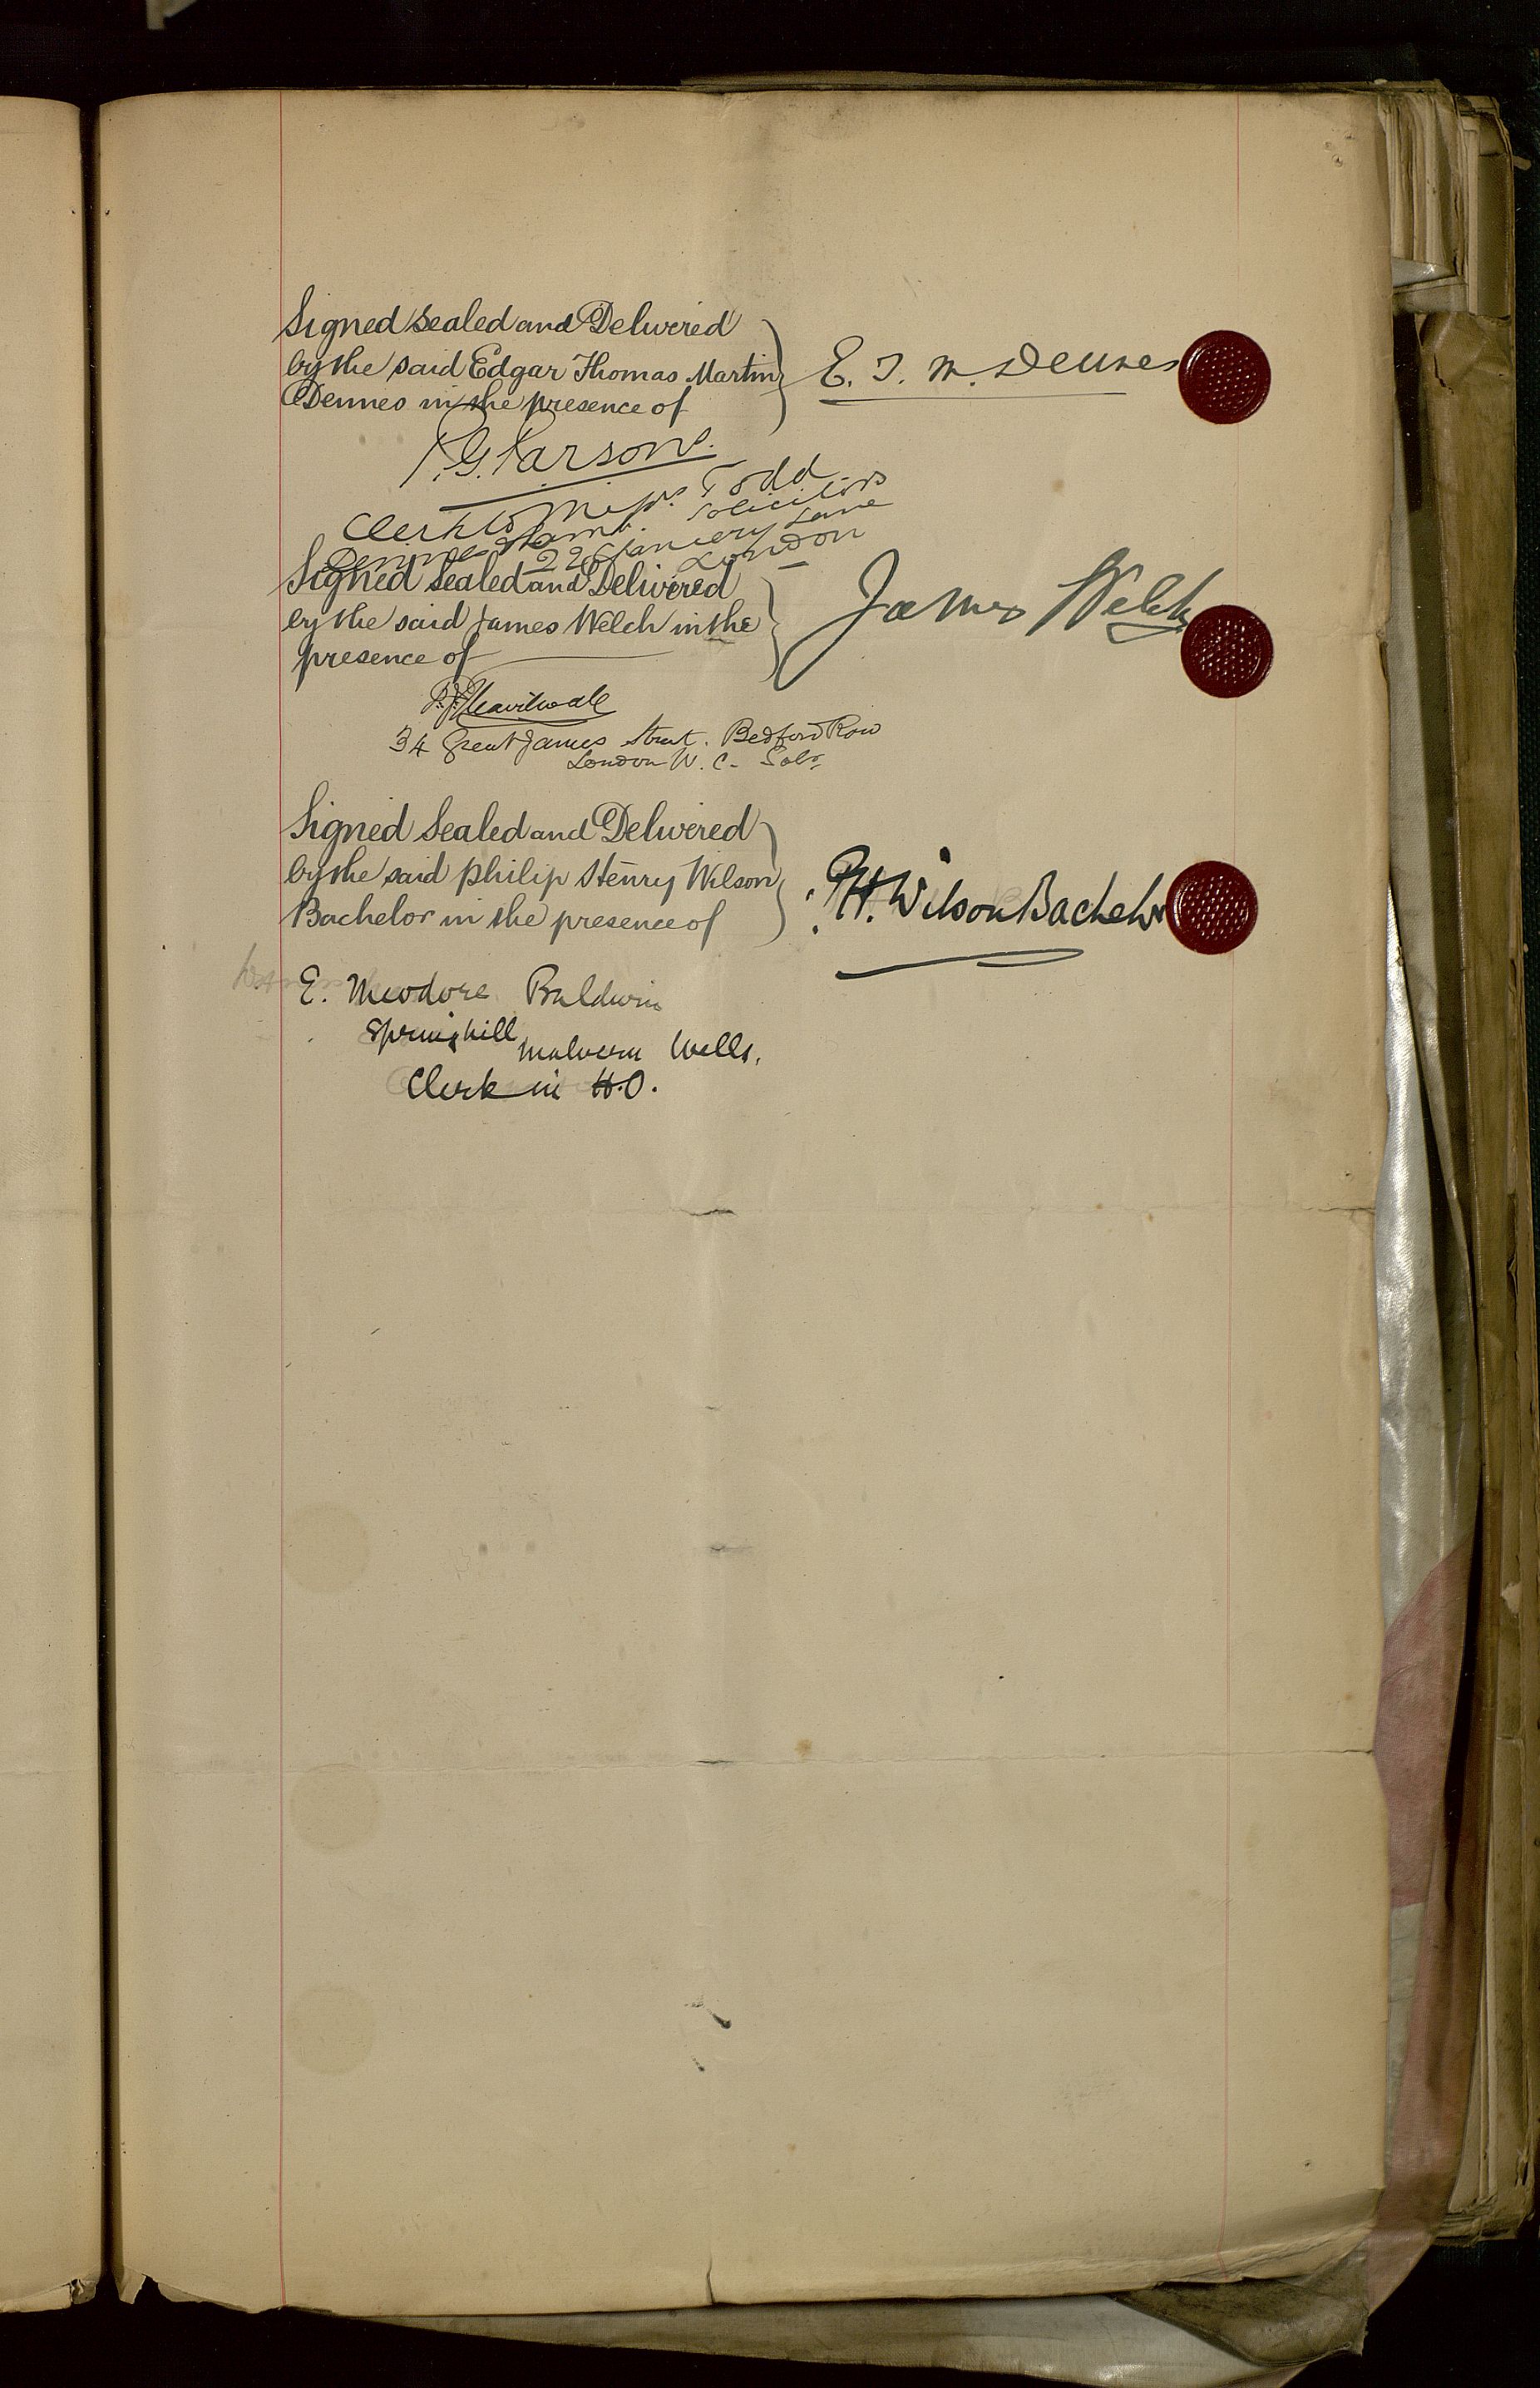 Signed Sealed and Delivered
by the said Edgar Thomas Martin
Dennes in the presence of
E. T. M. Dennes
P. G. Parsons.
Clerk to Messrs. Todd
Dennes & Lamb. Solicitors
22 Chancery Lane
London
Signed Sealed and Delivered
by the said James Welch in the
presence of
James Welch
34 Great James Street. Bedford Row
London W. C. Solr
Signed Sealed and Delivered
by the said Philip Henry Wilson
Bachelor in the presence of
P.H. Wilson Bachelor
E. Theodore Baldwin
Springhill
Malvern Wells.
Clerk in H.O.